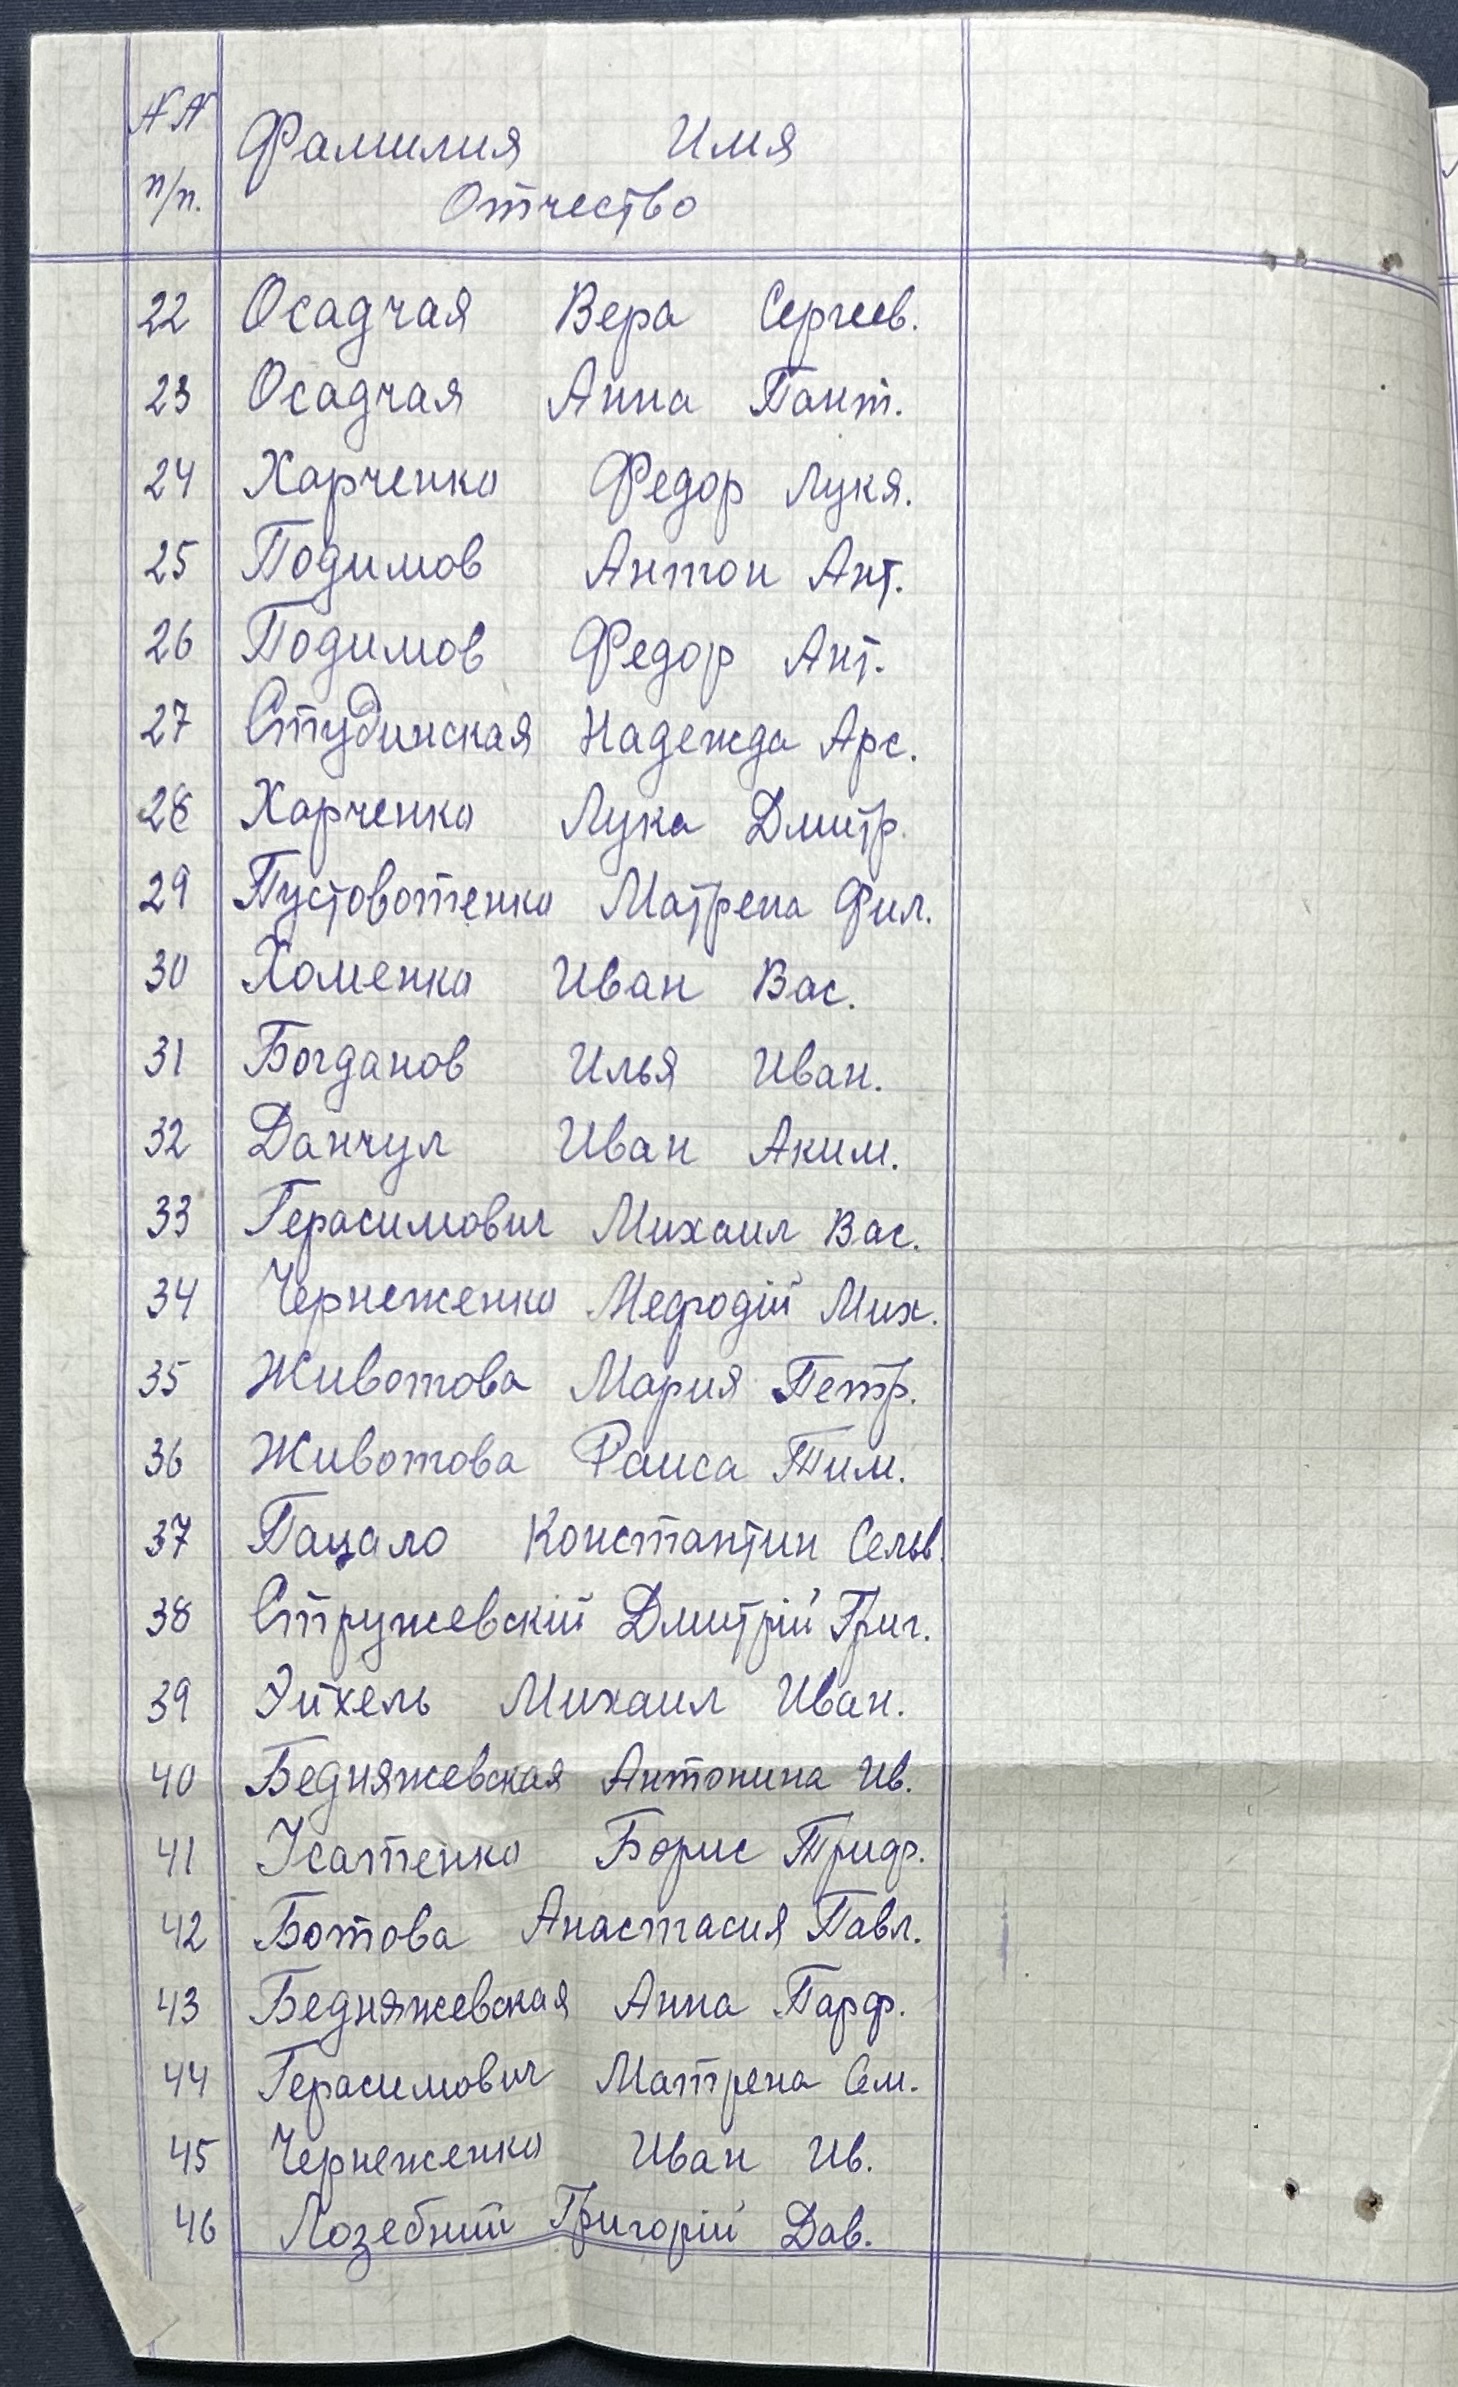 №№ Фамилия Имя
п/п. Отчество
22 Осадчая Вера Сергеев.
23 Осадчая Анна Пант.
24 Харченко Федор Лукя.
25 Подимов Антон Ант.
26 Подимов Федор Ант.
27 Студинская Надежда Арс.
28 Харченко Лука Дмитр.
29 Пустовотенко Матрена Фил.
30 Хоменко Иван Вас.
31 Богданов Илья Иван.
32 Данчул Иван Аким.
33 Герасимович Михаил Вас.
34 Чернеженко Мефодій Мих.
35 Животова Мария Петр.
36 Животова Раиса Тим.
37 Пацало Константин Сельв.
38 Стружевскій Дмитрій Григ.
39 Эйхель Михаил Иван.
40 Бедняжевская Антонина Ив.
41 Усатенко Борис Триф.
42 Ботова Анастасия Павл.
43 Бедняжевская Анна Парф.
44 Герасимович Матрена Сем.
45 Чернеженко Иван Ив.
46 Лозебний Григорій Дав.